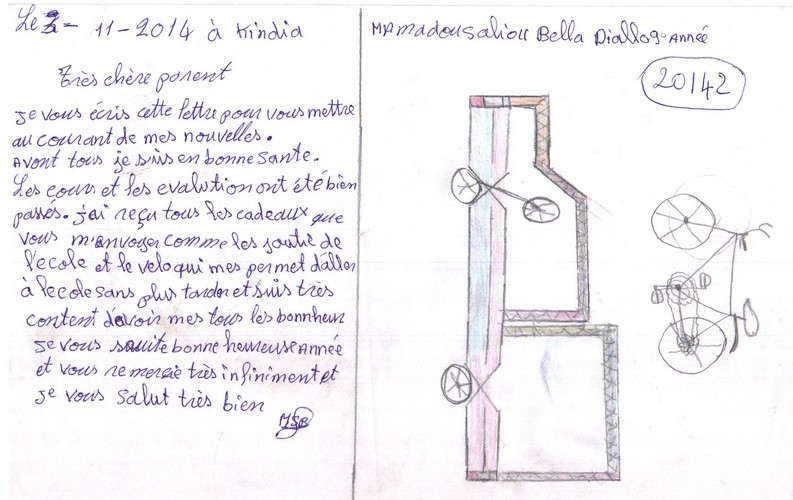 Le 3 - 11 - 2014 à Kindia
très chère parent
je vous écris cette lettre pour vous mettre
au courant de mes nouvelles.
Avant tous je suis en bonne sante.
Les cours et les evalution ont été bien
passés. j'ai reçu tous les cadeaux que
vous m'envoyer comme les
l'ecole et le velo qui mes permet d'aller
à l'ecole sans plus tarder et suis très
content d'avoir mes tous les bonnheur
je vous souite bonne heureuse Année
et vous remercie très infiniment et
je vous salut très bien
MSB
MAmadou saliou Bella Diallo 9e Année
20142